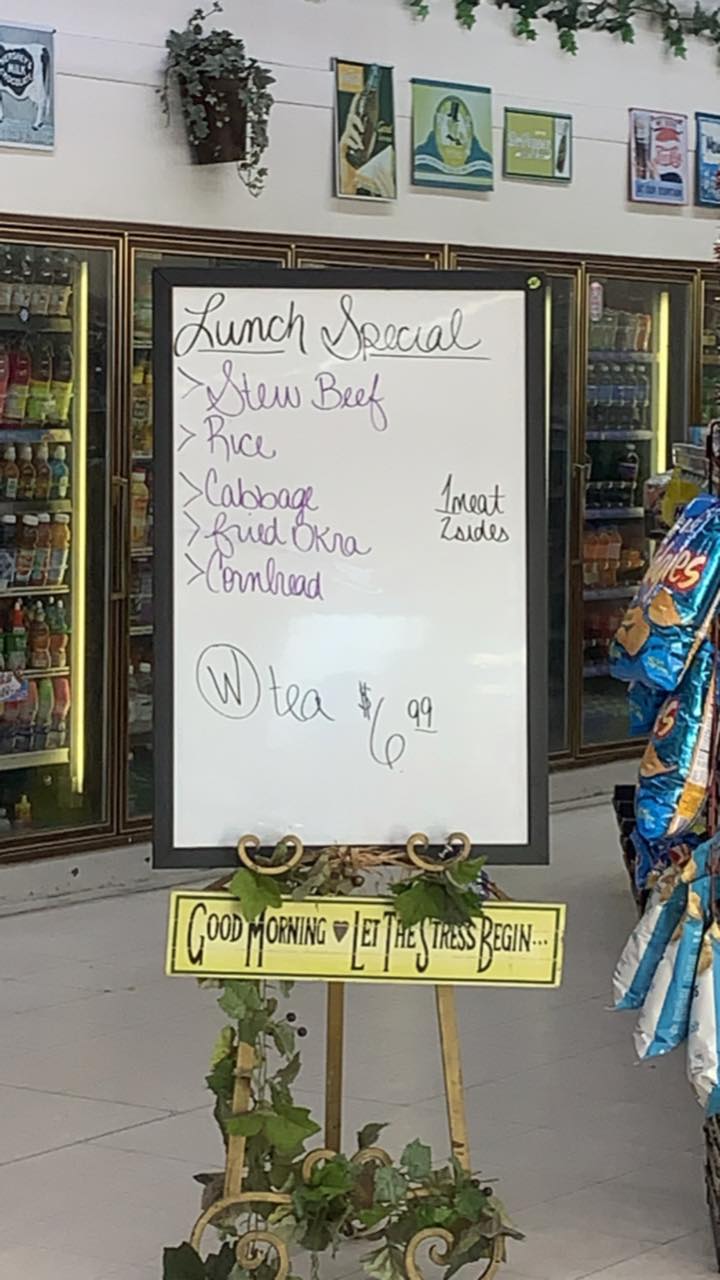 Lunch Special
> Stew Beef
> Rice
> Cabbage
> fried Okra
> Cornbread
1 meat
2 sides
W tea $6.99
GOOD MORNING ♥ LET THE STRESS BEGIN...